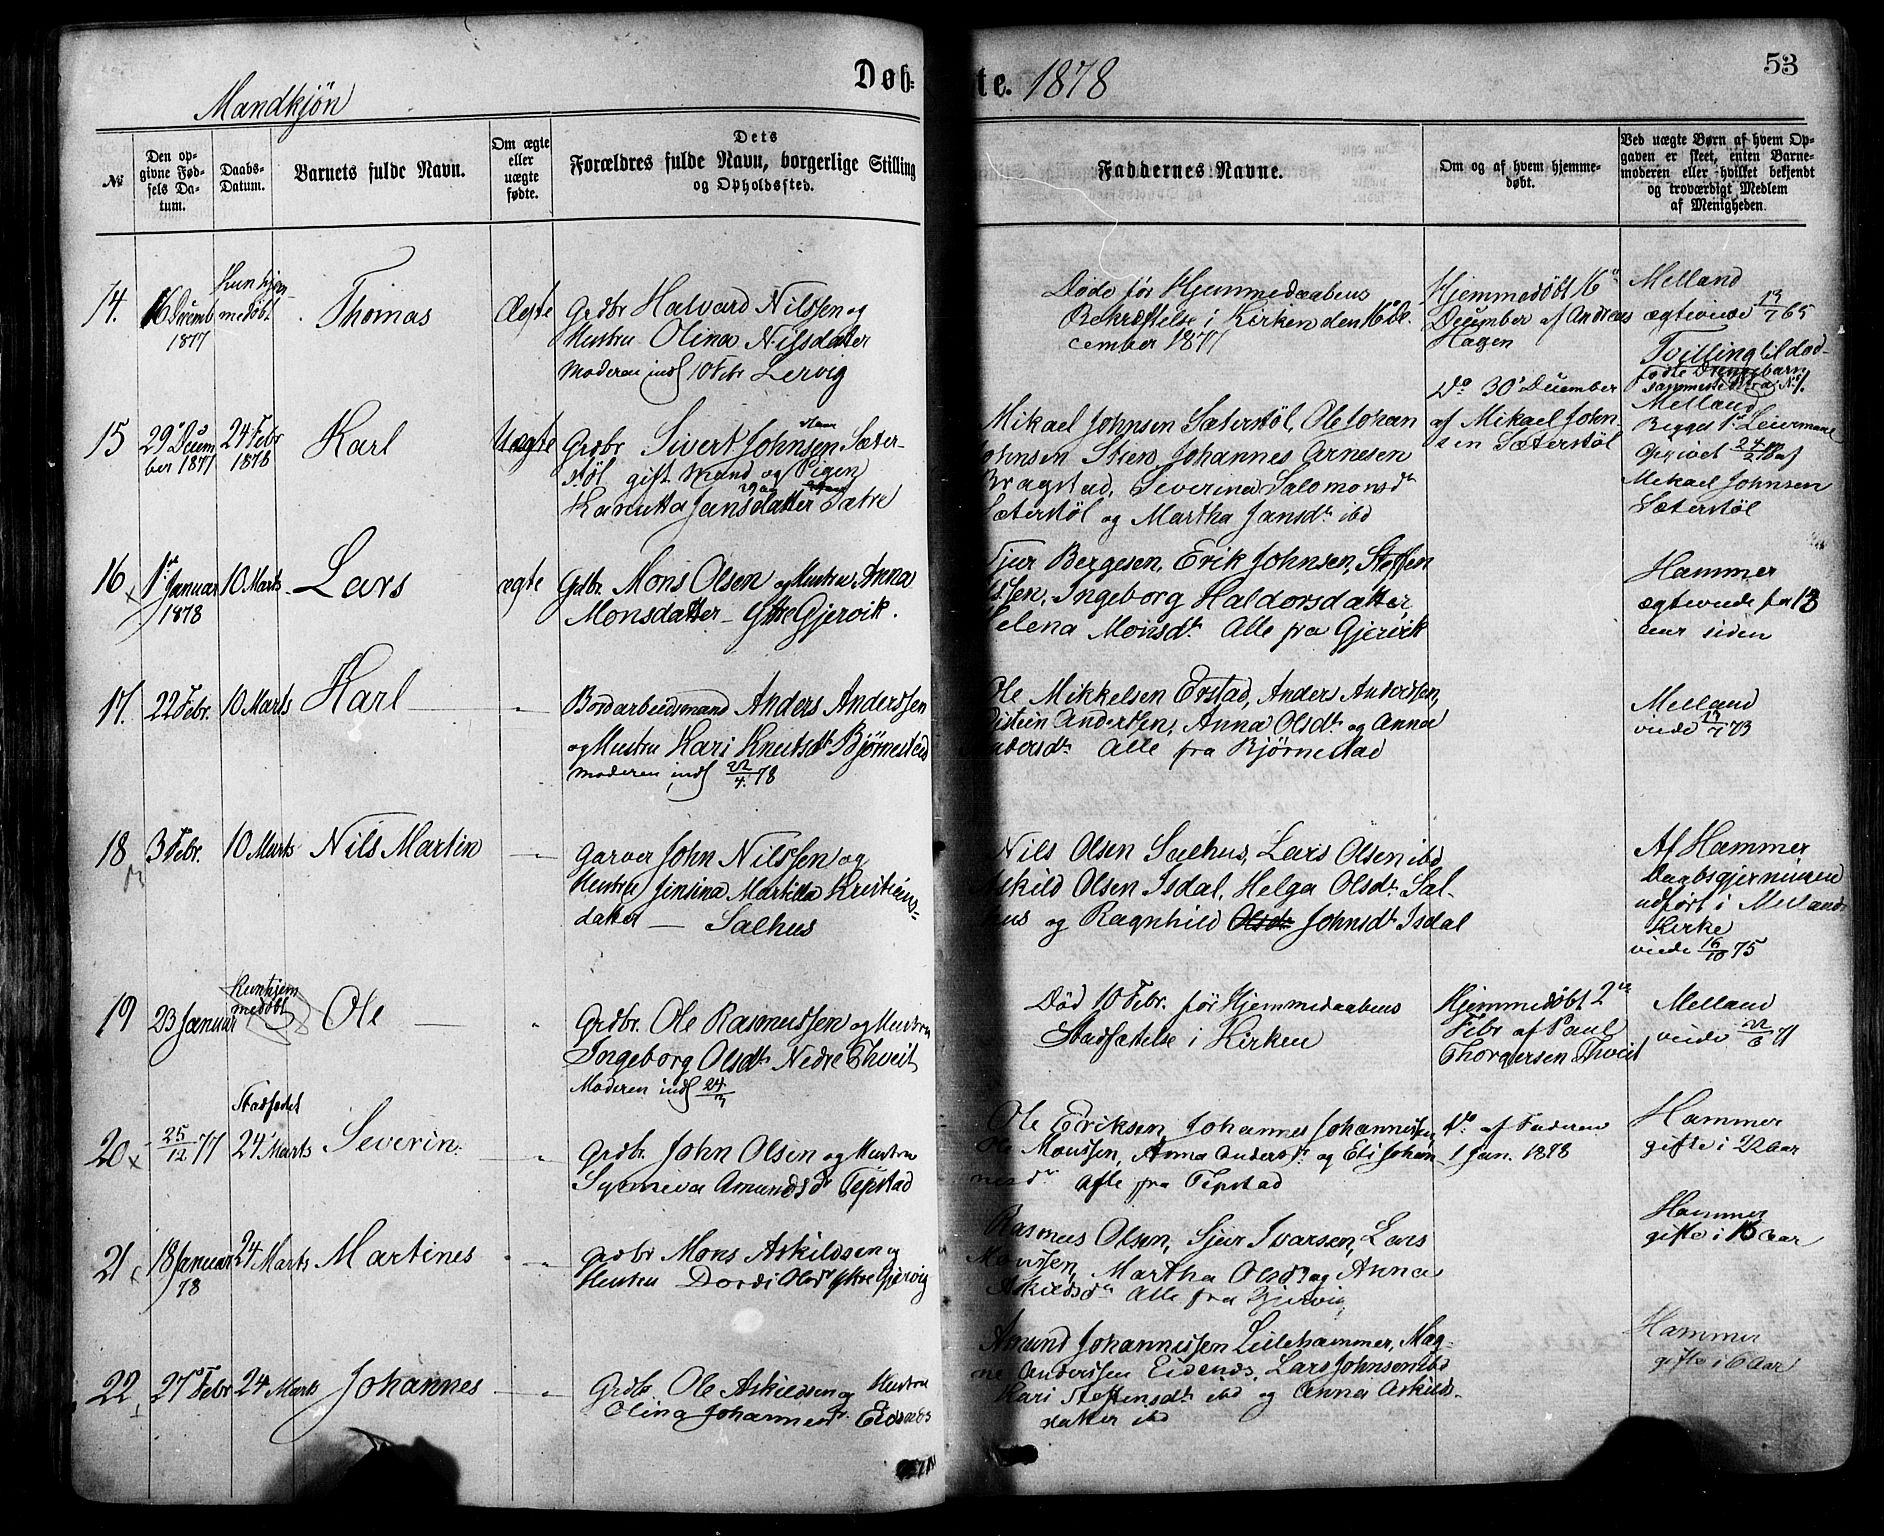 Døb-
te. 1878
53
Mandkjøn
№
Den op-
givne Fød-
sels Da-
tum.
Daabs-
Datum.
Barnets fulde Navn.
Om ægte
eller
uægte
fødte.
Dets
Forældres fulde Navn, borgerlige Stilling
og Opholdssted.
Faddernes Navne.
Om og af hvem hjemme-
døbt.
Ved uægte Børn af hvem Op-
gaven er skeet, enten Barne-
moderen eller hvilket bekjendt
og troværdigt Medlem
af Menigheden.
14.
16 Decemb
1877
Kun hjem-
medøbt
Thomas
Ægte
Grdbr Halvard Nilssen og
Hustru Olina Nilsdatter
Moderen indl 10 Febr Lervig
Døde før Hjemmedaabens
Bekræftelse i Kirken den 16 De-
cember 1877
Hjemmedøbt 16
December af Andreas
Hagen
Melland
ægteviede 13/7 65
Tvilling til død-
fødte Drengebarn
15
29 Decem
ber 1877
24 Febr
1878
Karl
Uægte
Grdbr Sivert Johnsen Sæter-
støl gift Mand og Pigen
Jansdatter Sætre
Mikael Johnsen Sæterstøl, Ole Johan
Johnsen Johannes Arnesen
Bragstad, Severina Salomonsdr
Sæterstøl og Martha Jansdr ibd
Do 30 December
af Mikael John
sen Sæterstøl
Melland
Begges 1 Leiermaal
Opgivet 24/2 af
Mikael Johnsen
Sæterstøl
16
1 Januar
1878
10 Marts
Lars
ægte
Gdbr. Mons Olsen og Hustru Anna
Monsdatter - Gjervik.
Sjur Bergesen, Erik Johnsen, Steffen
Ingeborg Haldorsdatter,
Helena Monsdr Alle fra Gjervik
Hammer
ægteviede for 13
aar siden
17.
22 Febr.
10 Marts
Karl
Bordarbeidsmand Anders Anderssen
og Hustru Kari Knutsdr Bjørnestad
Moderen indl 22/4 78
Ole Mikkelsen Erstad, Anders Anderssen,
Anderssen, Anna Olsdr og Anna
Andersdr Alle fra Bjørnestad
Melland
viede 13/7 73
18
3 Febr.
10 Marts
Nils Martin
Garver John Nilssen og
Hustru Jensina Martilda Kristians-
datter - Salhus
Nils Olsen Salhus, Lars Olsen ibd
Askild Olsen Isdal, Helga Olsdr Sal-
hus og Ragnhild Olsdr Johnsdr Isdal
Af Hammer
Daabsgjerningen
udført i Mellands
Kirke
viede 16/10 75
19
23 Januar
Kun hjem
medøbt
Ole
Grdbr. Ole Rasmussen og Hustru
Ingeborg Olsdr Nedre Thveit
Moderen indl 24/3
Død 10 Febr. før Hjemmedaabens
Stadfæstelse i Kirken
Hjemmedøbt 2
Febr af Paul
Thorgersen Thveit
Melland
viede 22/6 71
20
25/12 77
Stadfæstet
24 Marts
Severin
Grdbr. John Olsen og Hustru
Synneva Amundsdr Tepstad
Ole Eriksen, Johannes Johannessen,
Ole Monssen, Anna Andersdr og Eli Johan-
nesdr Alle fra Tepstad
Do af Faderen
1 Jan. 1878
Hammer
gifte i 22 aar
21
18 Januar
78
24 Marts
Martines
Grdbr Mons Askildsen og
Hustru Dordi Olsdr Gjervig
Rasmus Olsen, Sjur Ivarsen, Lars
Monssen, Martha Olsdr og Anna
Askildsdr Alle fra Gjervig
Hammer
gifte i 16 aar
22
27 Febr
24 Marts
Johannes
Grdbr. Ole Askildsen og Hustru
Olina Johannesdr. Eidsnes
Amund Johannessen Lillehammer, Mag-
ne Anderssen Eidsnes, Lars Johnsen ibd
Kari Steffensdr ibd og Anna Askilds-
datter ibd
Hammer
gifte i 6 aar